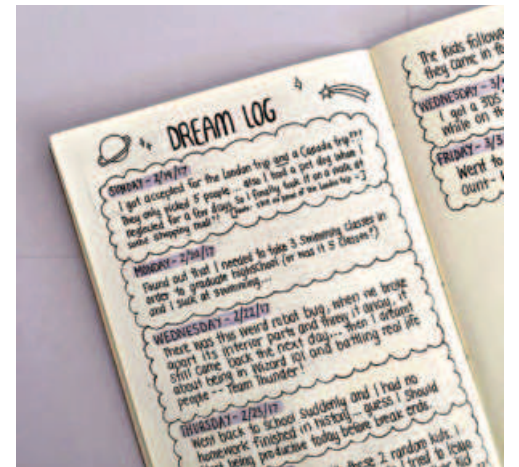 DREAM LOG
SUNDAY - 2/19/17
I got accepted for the London trip and a Canada trip???
they only picked 5 people... also I had a pet dog what I
neglected for a few days, so I finally took it on a walk at
some shopping mall!!
MONDAY - 2/20/17
Found out that I needed to take 3 swimming classes in
order to graduate highschool (or was it 5 classes?)
and I suck at swimming...
WEDNESDAY - 2/22/17
There was this weird robot bug, when we broke
apart its interior parts and threw it away, it
still came back the next day... then I dreamt
about being in Wizard 101 and battling real life
people -- Team Thunder!
THURSDAY - 2/23/17
Went back to school suddenly and I had no
homework finished in history... guess I should
start being productive today before break ends.
these 2 random kids. I
tried to leave
The kids followe
they came in fo
WEDNESDAY - 3/
I got a 3DS
while on th
FRIDAY - 3/3
Went to